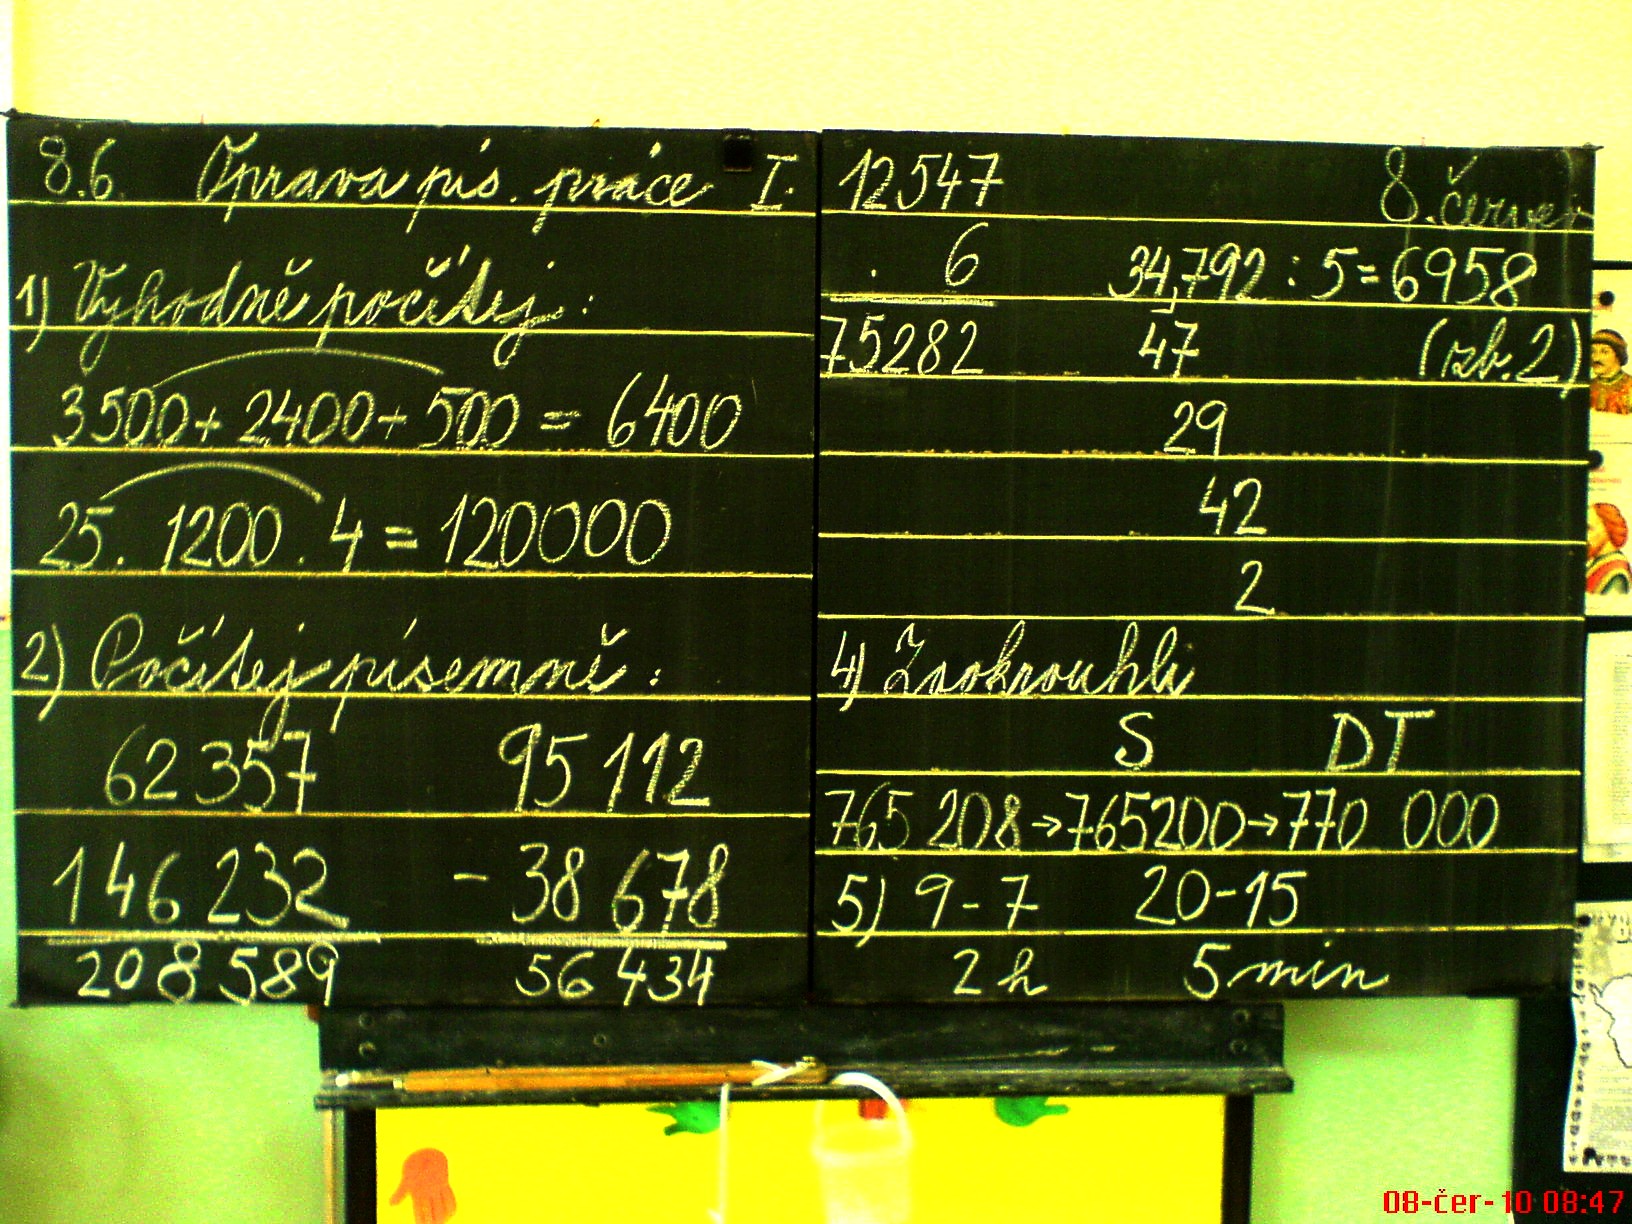 8.6 Oprava pís. práce I.
1) Vyhodně počítej:
3500 + 2400 + 500 = 6400
25 . 1200 . 4 = 120000
2) Počítej písemně:
62 357 95 112
146 232 - 38 678
208 589 56 434
12547 8. červen
. 6 34,792 : 5 = 6958
75282 47 (zb. 2)
29
42
2
4) Zaokrouhli
S DT
765 208 → 765200 → 770 000
5) 9 - 7 20 - 15
2 h 5 min
08-čer-10 08:47